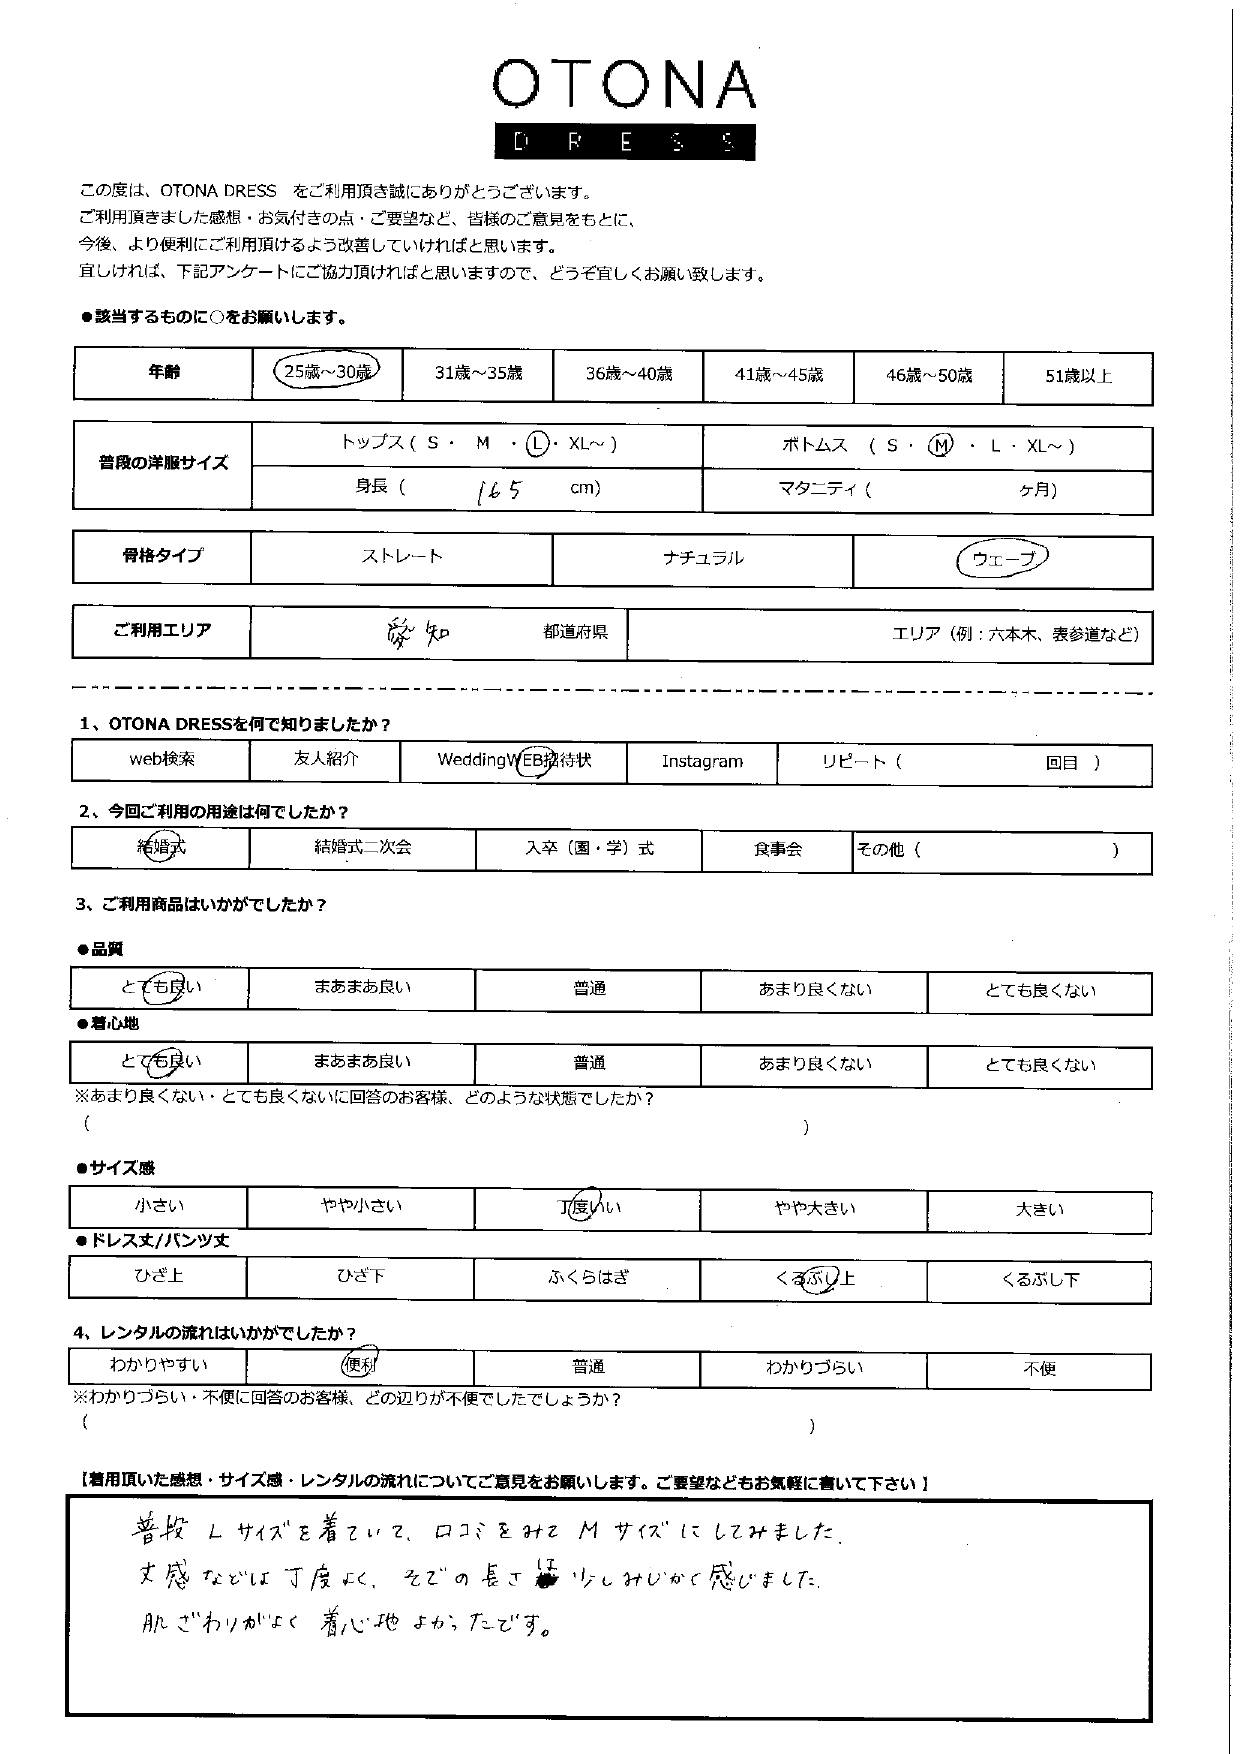 OTONA
DRESS
この度は、OTONA DRESS をご利用頂き誠にありがとうございます。
ご利用頂きました感想・お気付きの点・ご要望など、皆様のご意見をもとに、
今後、より便利にご利用頂けるよう改善していければと思います。
宜しければ、下記アンケートにご協力頂ければと思いますので、どうぞ宜しくお願い致します。
●該当するものに○をお願いします。
年齢 25歳～30歳 31歳～35歳 36歳～40歳 41歳～45歳 46歳～50歳 51歳以上
普段の洋服サイズ トップス ( S ・ M ・ L ・ XL～ ) ボトムス ( S ・ M ・ L ・ XL～ )
身長 ( 165 cm) マタニティ ( ヶ月)
骨格タイプ ストレート ナチュラル ウェーブ
ご利用エリア 愛知 都道府県 エリア（例：六本木、表参道など）
1、OTONA DRESSを何で知りましたか？
web検索 友人紹介 WeddingWEB招待状 Instagram リピート ( 回目 )
2、今回ご利用の用途は何でしたか？
結婚式 結婚式二次会 入卒（園・学）式 食事会 その他 ( )
3、ご利用商品はいかがでしたか？
●品質
とても良い まあまあ良い 普通 あまり良くない とても良くない
●着心地
とても良い まあまあ良い 普通 あまり良くない とても良くない
※あまり良くない・とても良くないに回答のお客様、どのような状態でしたか？
( )
●サイズ感
小さい やや小さい 丁度いい やや大きい 大きい
●ドレス丈/パンツ丈
ひざ上 ひざ下 ふくらはぎ くるぶし上 くるぶし下
4、レンタルの流れはいかがでしたか？
わかりやすい 便利 普通 わかりづらい 不便
※わかりづらい・不便に回答のお客様、どの辺りが不便でしたでしょうか？
( )
【着用頂いた感想・サイズ感・レンタルの流れについてご意見をお願いします。ご要望などもお気軽に書いて下さい】
普段 L サイズを着ていて、口コミをみて M サイズにしてみました。
丈感などは丁度よく、そでの長さは少しみじかく感じました。
肌ざわりがよく着心地よかったです。